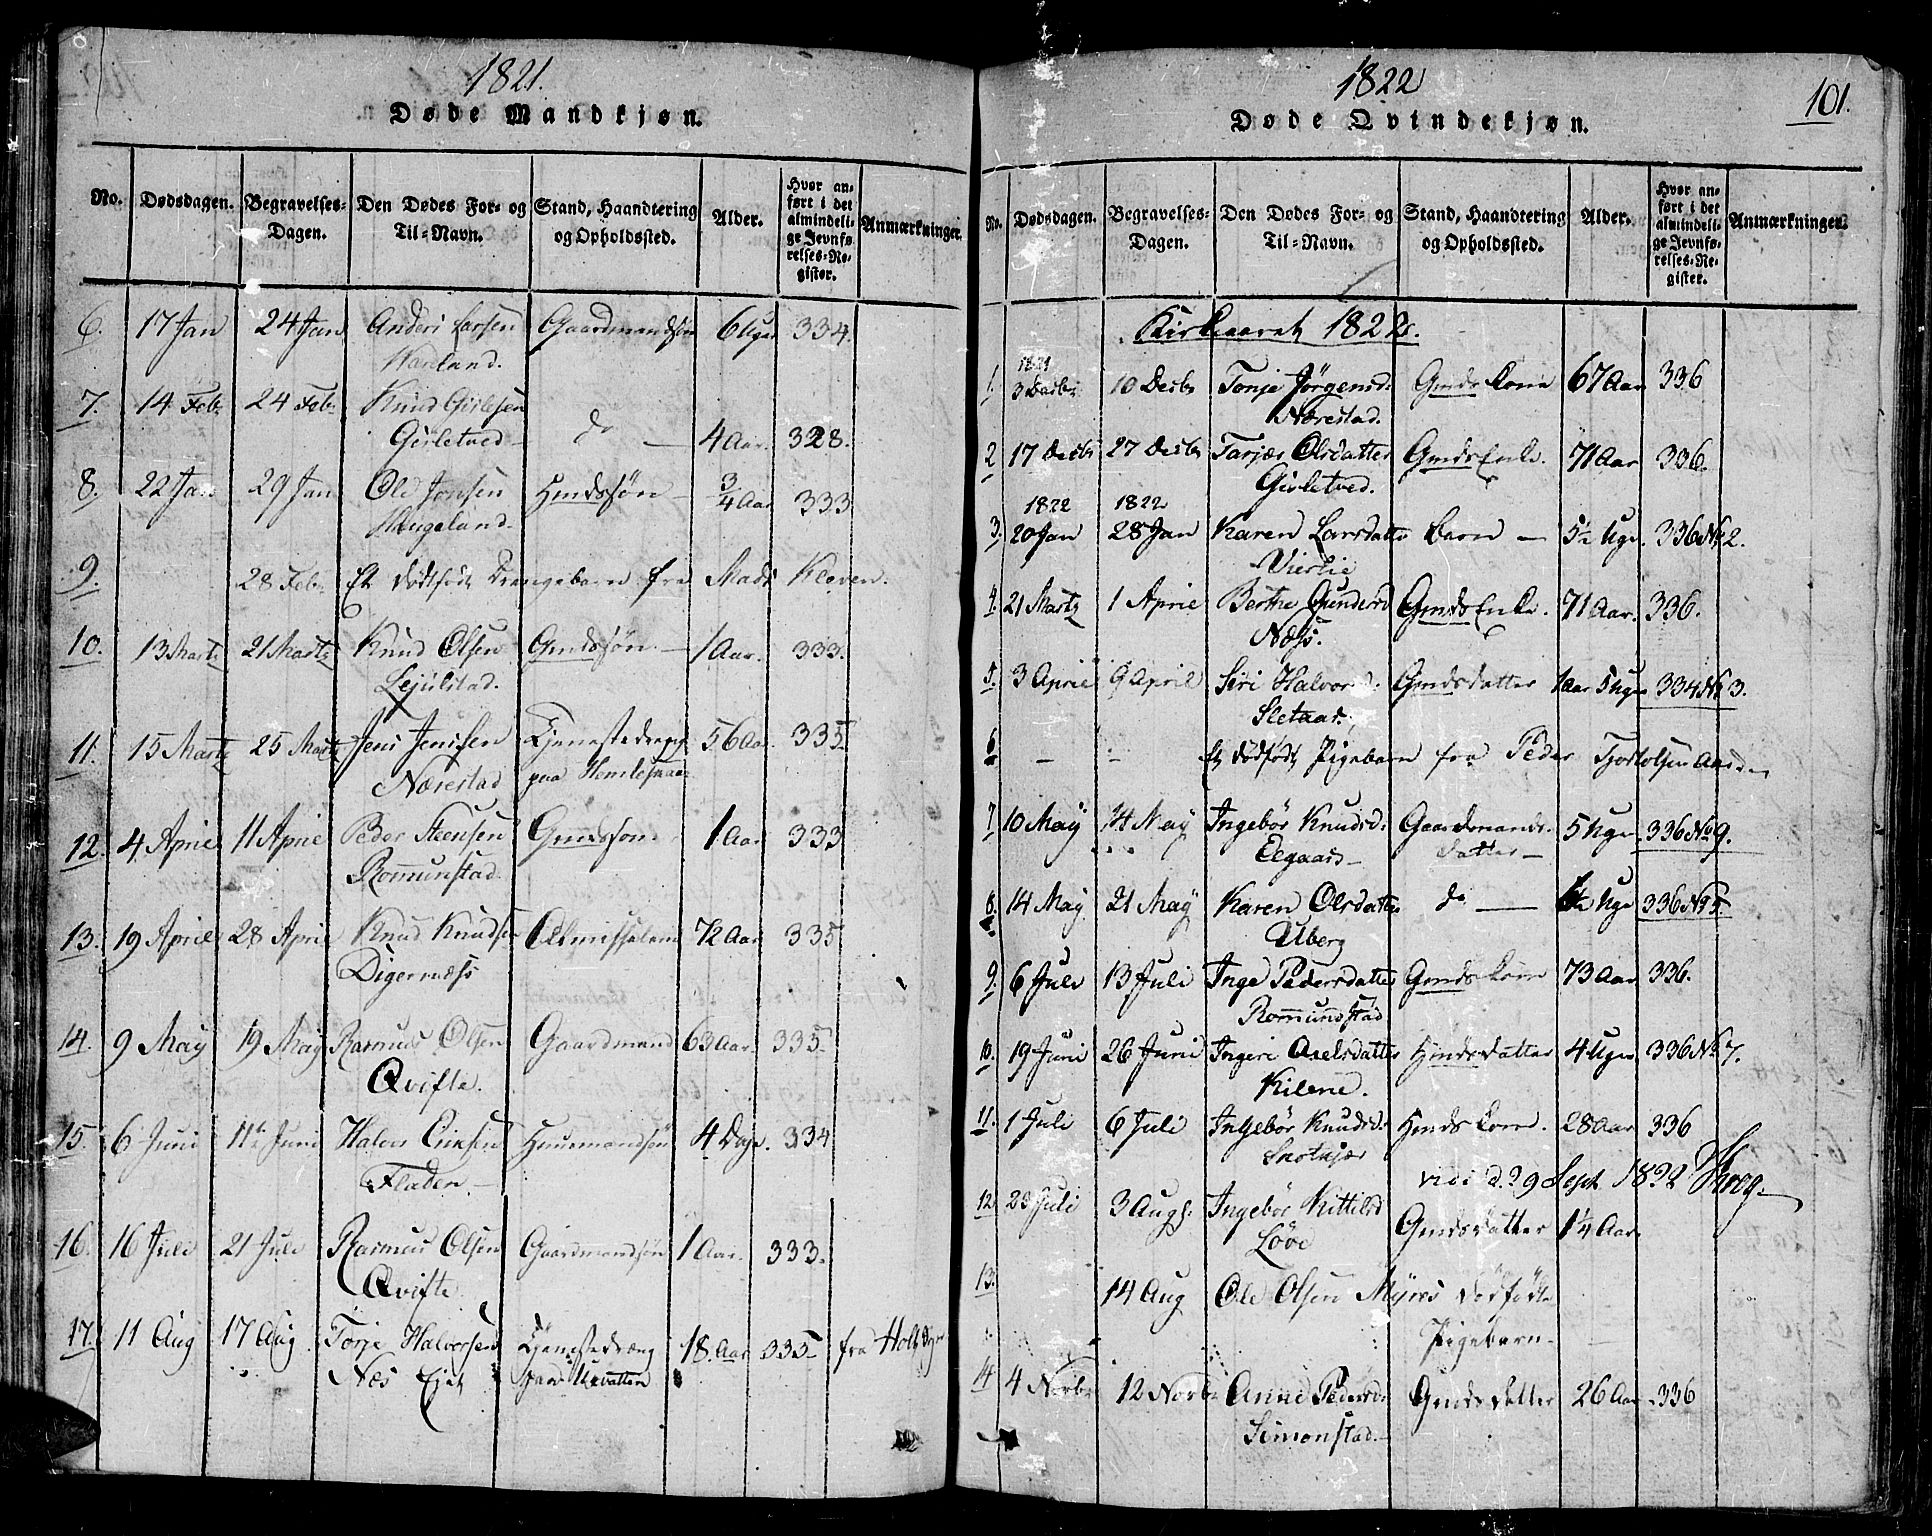 1821.
Døde Mandkjøn.
No. Dødsdagen. Begravelses-Dagen. Den Dødes For- og Til-Navn. Stand, Haandtering og Opholdssted. Alder. Hvor anført i det almindelige Jevnførelses-Register. Anmærkninger.
6. 17 Jan 24 Jan Anders Larsen Gaardmandssøn 6 Uger 334.
7. 14 Feb. 24 Feb. Knud Gislesen
Gisletved do — 4 Aar. 328.
8. 22 Jan 29 Jan Ole Jonsen Hmdssøn — 3/4 Aar 333
Haugeland.
9. 28 Feb. Et dødfødt Drengebarn fra Mads Kleven.
10. 13 Martz 21 Martz Knud Olsen Gmdssøn — 1 Aar. 333.
Lejulstad.
11. 15 Martz 25 Martz Jens Jensen Tjenestedreng 56 Aar. 335
Nærestad paa
12. 4 April 11 April Peder Steensen Gmdssøn 1 Aar 333
Romunstad.
13. 19 April 28 April Knud Knudsen Almisselem 72 Aar 335
Digernæss
14. 9 May 19 May Rasmus Olsen Gaardmand 63 Aar. 335.
Qvifte.
15. 6 Juni 11te Juni Halvor Eriksen Huusmandssøn 4 Dage. 334
Fladen —
16. 16 Juli 21 Juli Rasmus Olsen Gaardmandssøn 1 Aar. 333.
Qvifte.
17. 11 Aug 17 Aug Torje Halvorsen Tjenestedræng 18. Aar 335 fra Holt
Næs Ejet paa Uevatten
1822
101.
Døde Qvindekjøn.
No. Dødsdagen. Begravelses-Dagen. Den Dødes For- og Til-Navn. Stand, Haandtering og Opholdssted. Alder. Hvor anført i det almindelige Jevnførelses-Register. Anmærkninger.
Kirkeaaret 1822.
1821
1. 3 Decbr 10 Decbr Tonje Jörgensd: Gmds Kone 67 Aar 336
Nærestad.
2 17 Decbr 27 Decbr Tarjer Olsdatter Gmds Enke. 71 Aar 336.
Gisletved.
1822 1822
3. 20 Jan 28 Jan Karen Larsdatter Barn — 5½ Uge. 336 No 2.
Vierlie
4. 21 Martz 1 April Berthe Gundersd Gmds Enke. 71 Aar. 336.
Næss.
5. 3 April 9 April Siri Halvorsd: Gmdsdatter 1 Aar 5 Uger 334 No 3.
Sletaas.
6 — — Et dødfødt Pigebarn fra Peder Tjostolsen
7 10 May 14 May Ingebör Knudsd: Gaardmands- 5 Uger 336 No 9.
Elgaas — datter —
8. 14 May 21 May Karen Olsdatter do — Uge 336 No 5.
Uberg
9. 6 Juli 13 Juli Inge Pedersdatter Gmds Kone 73 Aar 336.
Romundstad
10. 19 Juni 26 Juni Ingeri Axelsdatter Hmdsdatter 4 Uger 336 No 7.
Kilene.
11. 1 Juli 6 Juli Ingebör Knudsd: Hmds Kone. 28 Aar 336
vidi d. 29 Sept. 1822
12. 23 Juli 3 Aug. Ingebör Kittilsd Gmdsdatter 1¼ Aar.
Löve
13. 14 Aug Ole Olsen Myres dödfödte
Pigebarn —
14 4 Novbr 12 Novbr Anne Pedersd: Gmdsdatter 26 Aar 336
Simonstad. —